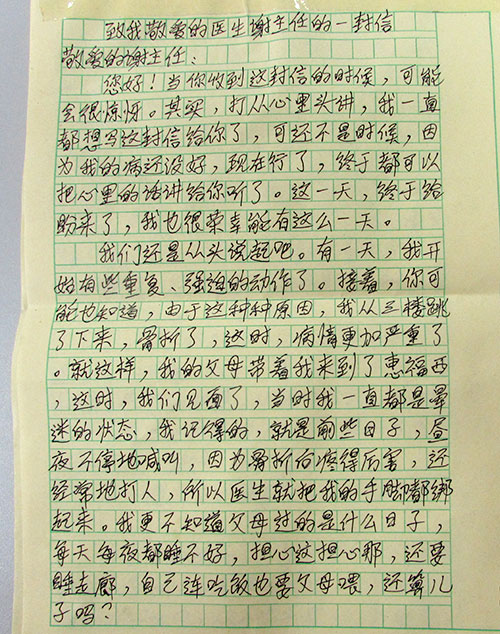 致我敬爱的医生谢主任的一封信
敬爱的谢主任、
您好！当你收到这封信的时候，可能
会很惊讶。其实，打从心里头讲，我一直
都想写这封信给你了，可还不是时候，因
为我的病还没好，现在行了，终于都可以
把心里的话讲给你听了。这一天，终于给
盼来了，我也很荣幸能有这么一天。
我们还是从头说起吧。有一天，我开
始有些重复、强迫的动作了。接着，你可
能也知道，由于这种种原因，我从三楼跳
了下来，骨折了，这时，病情更加严重了
。就这样，我的父母带着我来到了惠福西
，这时，我们见面了，当时我一直都是晕
迷的状态，我记得的，就是前些日子，昼
夜不停地喊叫，因为骨折后疼得厉害，还
经常地打人，所以医生就把我的手脚都绑
起来。我更不知道父母过的是什么日子，
每天每夜都睡不好，担心这担心那，还要
睡走廊，自己连吃饭也要父母喂，还算儿
子吗？